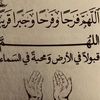 اللهم فرجا وفرحا وجبرا قريبا
اللهم
قبولا في الأرض ومحبة في السماء